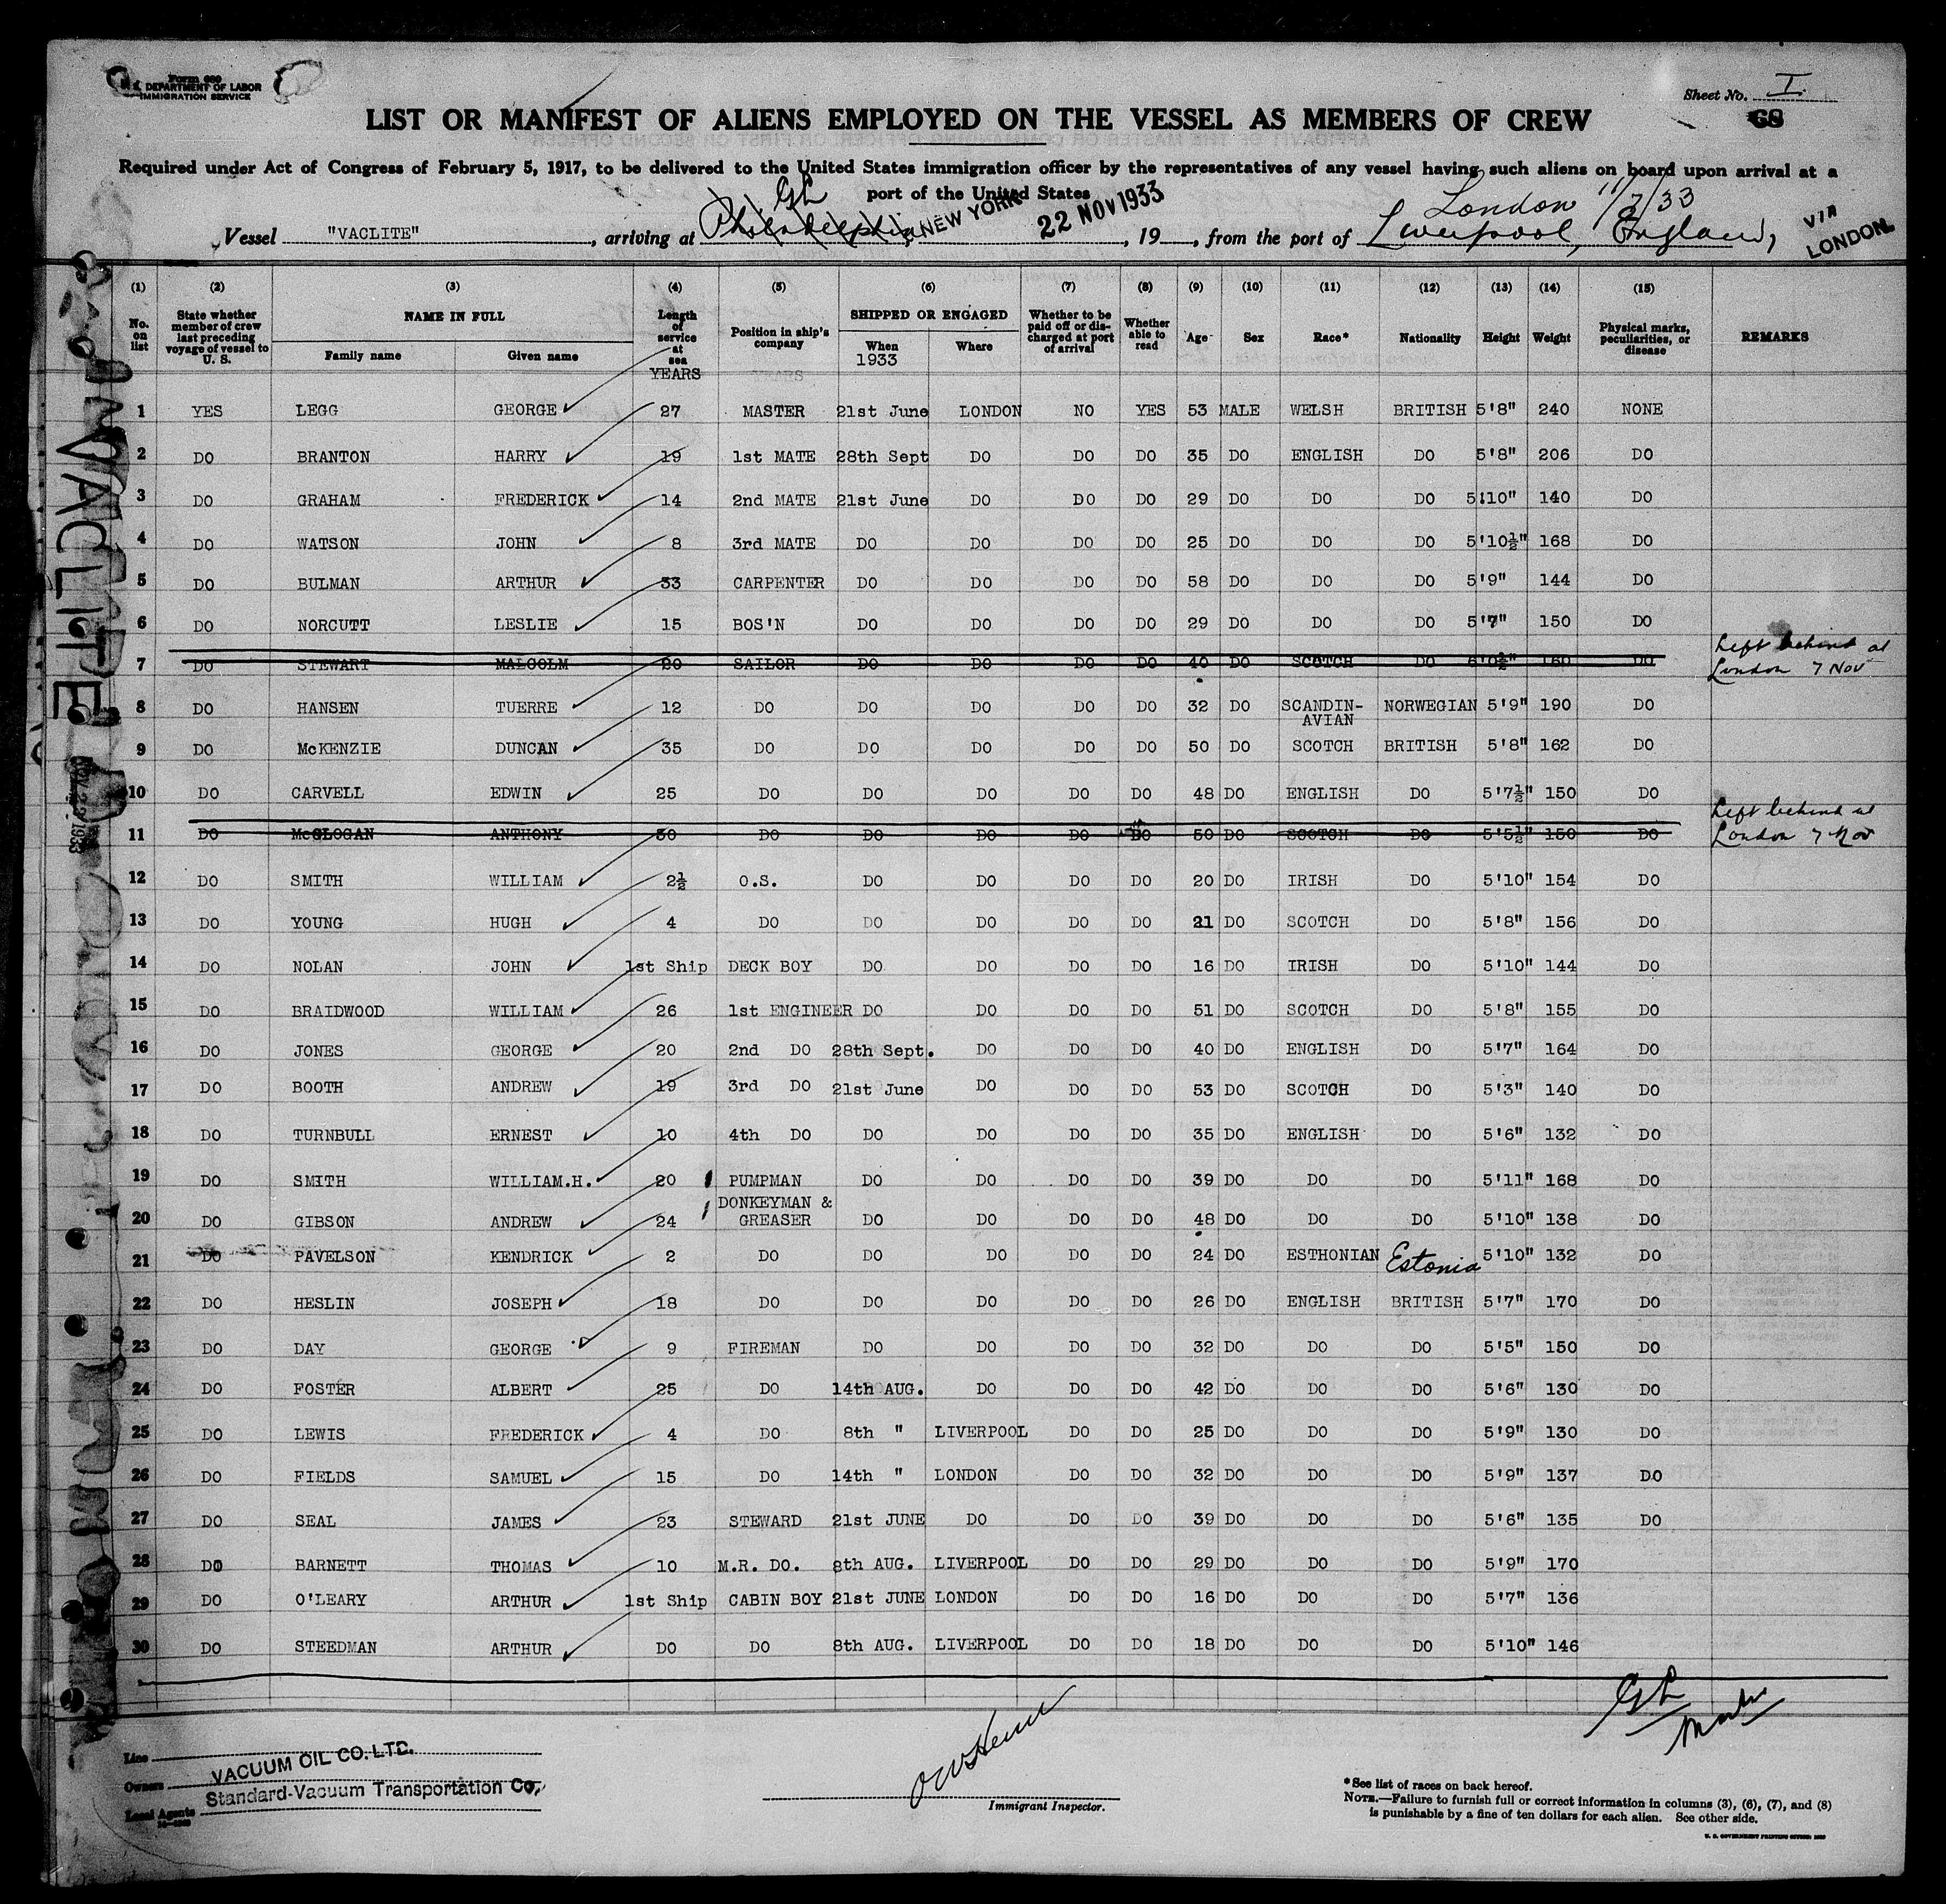 Form 680
U.S. DEPARTMENT OF LABOR
IMMIGRATION SERVICE
Sheet No. I.
LIST OR MANIFEST OF ALIENS EMPLOYED ON THE VESSEL AS MEMBERS OF CREW
68
Required under Act of Congress of February 5, 1917, to be delivered to the United States immigration officer by the representatives of any vessel having such aliens on board upon arrival at a
port of the United States
Vessel "VACLITE", arriving at Philadelphia GL NEW YORK 22 NOV 1933, 19, from the port of London 11/7/33 Liverpool, England, VIA LONDON.
(1) (2) (3) (4) (5) (6) (7) (8) (9) (10) (11) (12) (13) (14) (15)
No. on list State whether member of crew last preceding voyage of vessel to U. S. NAME IN FULL Family name Given name Length of service at sea YEARS Position in ship's company SHIPPED OR ENGAGED When 1933 Where Whether to be paid off or discharged at port of arrival Whether able to read Age Sex Race* Nationality Height Weight Physical marks, peculiarities, or disease REMARKS
1 YES LEGG GEORGE 27 MASTER 21st June LONDON NO YES 53 MALE WELSH BRITISH 5'8" 240 NONE
2 DO BRANTON HARRY 19 1st MATE 28th Sept DO DO DO 35 DO ENGLISH DO 5'8" 206 DO
3 DO GRAHAM FREDERICK 14 2nd MATE 21st June DO DO DO 29 DO DO DO 5'10" 140 DO
4 DO WATSON JOHN 8 3rd MATE DO DO DO DO 25 DO DO DO 5'10½" 168 DO
5 DO BULMAN ARTHUR 33 CARPENTER DO DO DO DO 58 DO DO DO 5'9" 144 DO
6 DO NORCUTT LESLIE 15 BOS'N DO DO DO DO 29 DO DO DO 5'7" 150 DO
7 DO STEWART MALCOLM 20 SAILOR DO DO DO DO 40 DO SCOTCH DO 6'0½" 180 DO Left behind at London 7 Nov
8 DO HANSEN TUERRE 12 DO DO DO DO DO 32 DO SCANDIN-AVIAN NORWEGIAN 5'9" 190 DO
9 DO McKENZIE DUNCAN 35 DO DO DO DO DO 50 DO SCOTCH BRITISH 5'8" 162 DO
10 DO CARVELL EDWIN 25 DO DO DO DO DO 48 DO ENGLISH DO 5'7½" 150 DO
11 DO McGLOGAN ANTHONY 30 DO DO DO DO DO 50 DO SCOTCH DO 5'5½" 150 DO Left behind at London 7 Nov
12 DO SMITH WILLIAM 2½ O.S. DO DO DO DO 20 DO IRISH DO 5'10" 154 DO
13 DO YOUNG HUGH 4 DO DO DO DO DO 21 DO SCOTCH DO 5'8" 156 DO
14 DO NOLAN JOHN 1st Ship DECK BOY DO DO DO DO 16 DO IRISH DO 5'10" 144 DO
15 DO BRAIDWOOD WILLIAM 26 1st ENGINEER DO DO DO DO 51 DO SCOTCH DO 5'8" 155 DO
16 DO JONES GEORGE 20 2nd DO 28th Sept. DO DO DO 40 DO ENGLISH DO 5'7" 164 DO
17 DO BOOTH ANDREW 19 3rd DO 21st June DO DO DO 53 DO SCOTCH DO 5'3" 140 DO
18 DO TURNBULL ERNEST 10 4th DO DO DO DO DO 35 DO ENGLISH DO 5'6" 132 DO
19 DO SMITH WILLIAM.H. 20 PUMPMAN DO DO DO DO 39 DO DO DO 5'11" 168 DO
20 DO GIBSON ANDREW 24 DONKEYMAN & GREASER DO DO DO DO 48 DO DO DO 5'10" 138 DO
21 DO PAVELSON KENDRICK 2 DO DO DO DO DO 24 DO ESTHONIAN Estonia 5'10" 132 DO
22 DO HESLIN JOSEPH 18 DO DO DO DO DO 26 DO ENGLISH BRITISH 5'7" 170 DO
23 DO DAY GEORGE 9 FIREMAN DO DO DO DO 32 DO DO DO 5'5" 150 DO
24 DO FOSTER ALBERT 25 DO 14th AUG. DO DO DO 42 DO DO DO 5'6" 130 DO
25 DO LEWIS FREDERICK 4 DO 8th " LIVERPOOL DO DO 25 DO DO DO 5'9" 130 DO
26 DO FIELDS SAMUEL 15 DO 14th " LONDON DO DO 32 DO DO DO 5'9" 137 DO
27 DO SEAL JAMES 23 STEWARD 21st JUNE DO DO DO 39 DO DO DO 5'6" 135 DO
28 DO BARNETT THOMAS 10 M.R. DO. 8th AUG. LIVERPOOL DO DO 29 DO DO DO 5'9" 170
29 DO O'LEARY ARTHUR 1st Ship CABIN BOY 21st JUNE LONDON DO DO 16 DO DO DO 5'7" 136
30 DO STEEDMAN ARTHUR DO DO 8th AUG. LIVERPOOL DO DO 18 DO DO DO 5'10" 146
GL
Line VACUUM OIL CO. LTD.
Owners Standard-Vacuum Transportation Co.
Local Agents
Immigrant Inspector.
*See list of races on back hereof.
NOTE.—Failure to furnish full or correct information in columns (3), (6), (7), and (8)
is punishable by a fine of ten dollars for each alien. See other side.
U. S. GOVERNMENT PRINTING OFFICE
VACLITE
NOV 22 1933